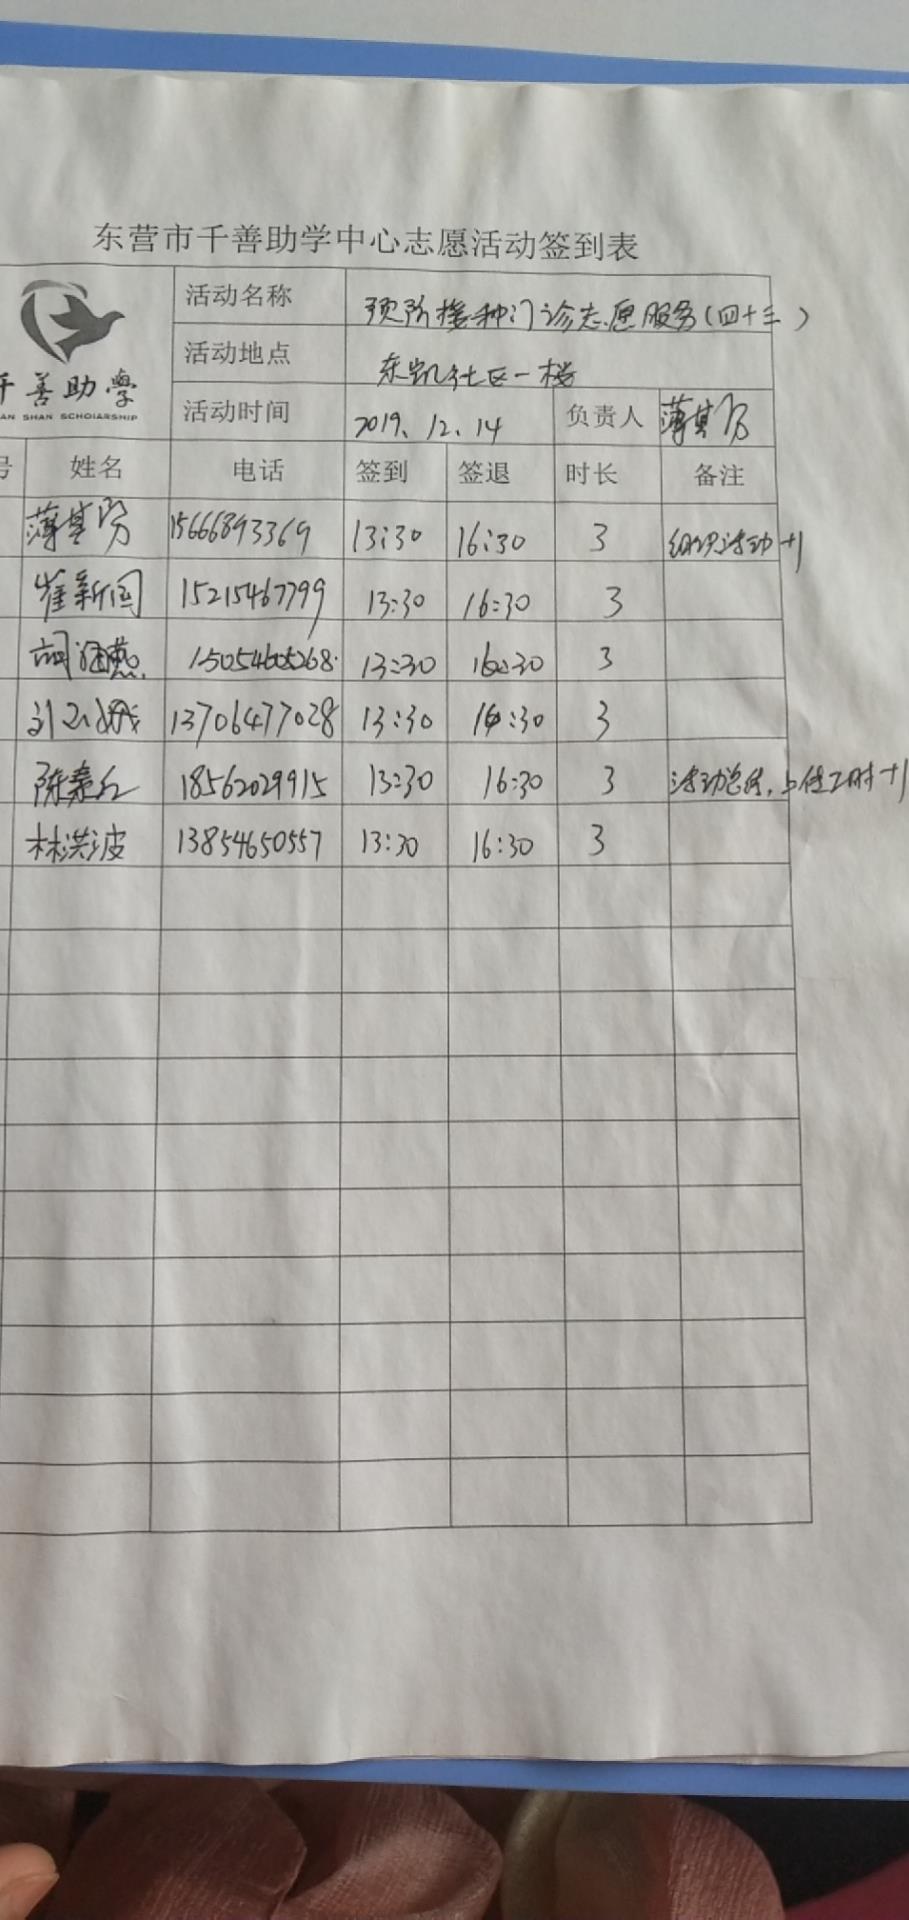 东营市千善助学中心志愿活动签到表
千善助學
AN SHAN SCHOlARSHIP
活动名称 预防接种门诊志愿服务(四十三)
活动地点 东凯社区一楼
活动时间 2019、12、14 负责人 薄其
号 姓名 电话 签到 签退 时长 备注
薄其 15666893369 13:30 16:30 3 组织活动+1
崔新国 15215467799 13:30 16:30 3
胡 燕 15054605268 13:30 16:30 3
刘 13706477028 13:30 16:30 3
陈 18562029915 13:30 16:30 3 活动总结,上传工时+1
林洪波 13854650557 13:30 16:30 3